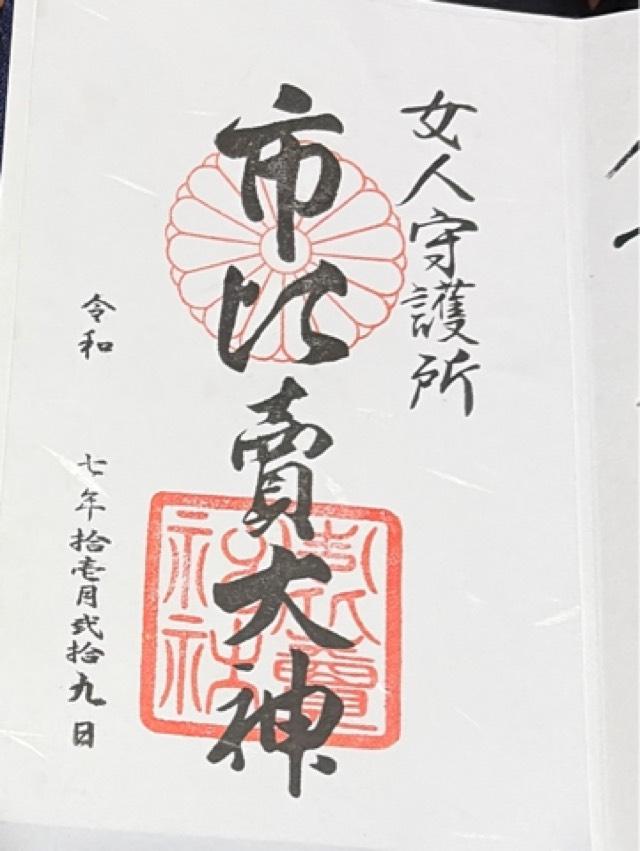 女人守護所
市比賣大神
令和 七年拾壱月弐拾九日